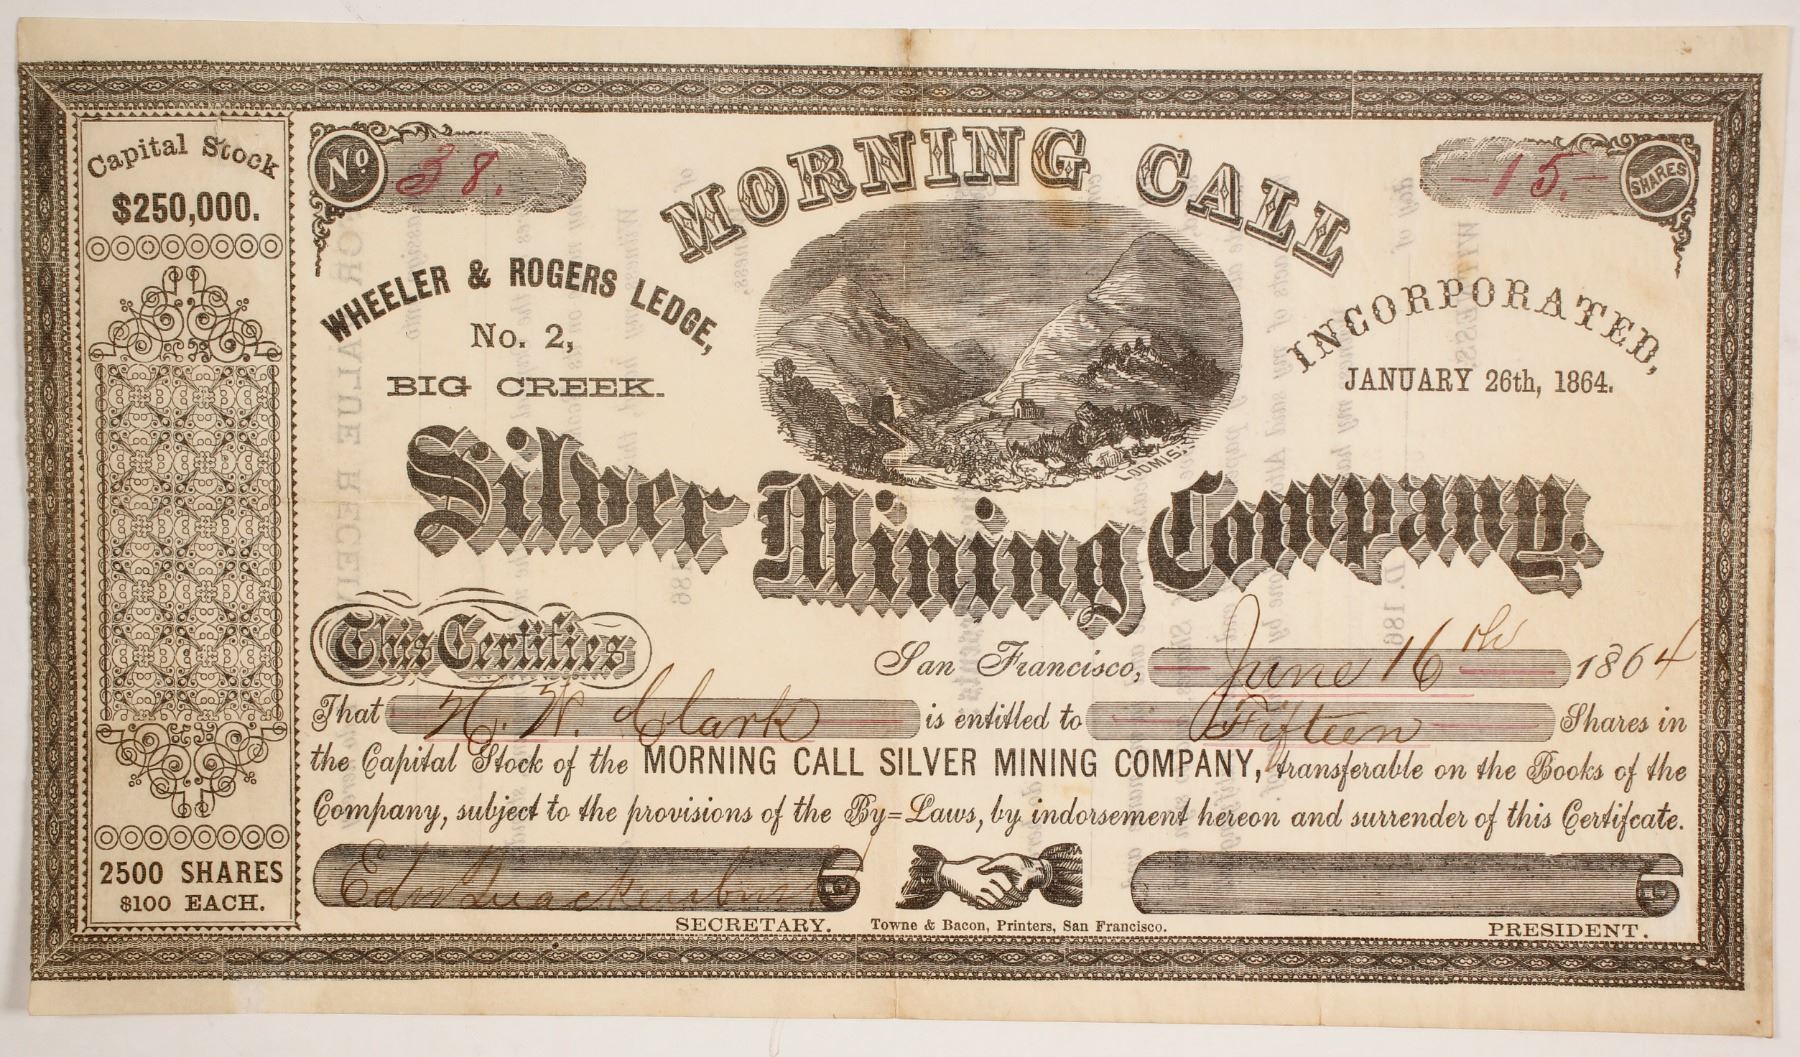 Capital Stock
$250,000.
2500 SHARES
$100 EACH.
No 38.
MORNING CALL
-15.- SHARES
WHEELER & ROGERS LEDGE,
No. 2,
BIG CREEK.
INCORPORATED,
JANUARY 26th, 1864.
LOOMIS.
Silver Mining Company.
This Certifies
San Francisco, June 16th 1864
That H. W. Clark is entitled to Fifteen Shares in
the Capital Stock of the MORNING CALL SILVER MINING COMPANY, transferable on the Books of the
Company, subject to the provisions of the By=Laws, by indorsement hereon and surrender of this Certifcate.
Edw Quackenbush
SECRETARY.
Towne & Bacon, Printers, San Francisco.
PRESIDENT.